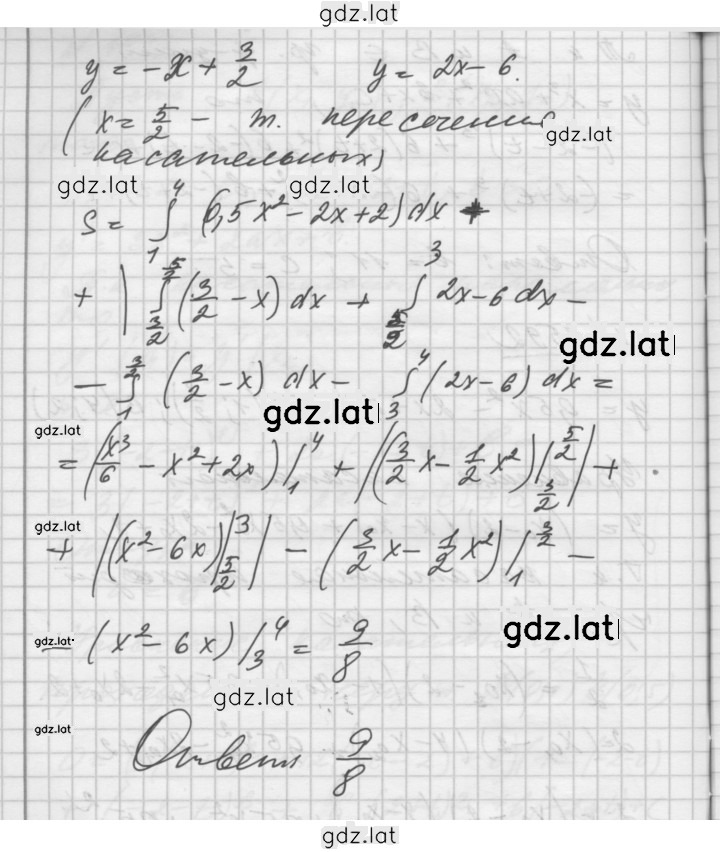 gdz.lat
y = -x + 3/2 y = 2x - 6.
(x = 5/2 - т. пересечения gdz.lat
касательных)
gdz.lat gdz.lat
S = ∫₁⁴ (0,5x² - 2x + 2) dx +
+ | ∫_{3/2}^{5/2} (3/2 - x) dx + ∫_{5/2}^{3} 2x - 6 dx -
gdz.lat
- ∫_{1}^{3/2} (3/2 - x) dx - ∫₃⁴ (2x - 6) dx =
gdz.lat
gdz.lat
= (x³/6 - x² + 2x) |₁⁴ + |(3/2 x - 1/2 x²) |_{3/2}^{5/2}| +
gdz.lat
+ |(x² - 6x) |_{5/2}^{3}| - (3/2 x - 1/2 x²) |_{1}^{3/2} -
gdz.lat gdz.lat
- (x² - 6x) |₃⁴ = 9/8
gdz.lat
gdz.lat
Ответ 9/8
gdz.lat